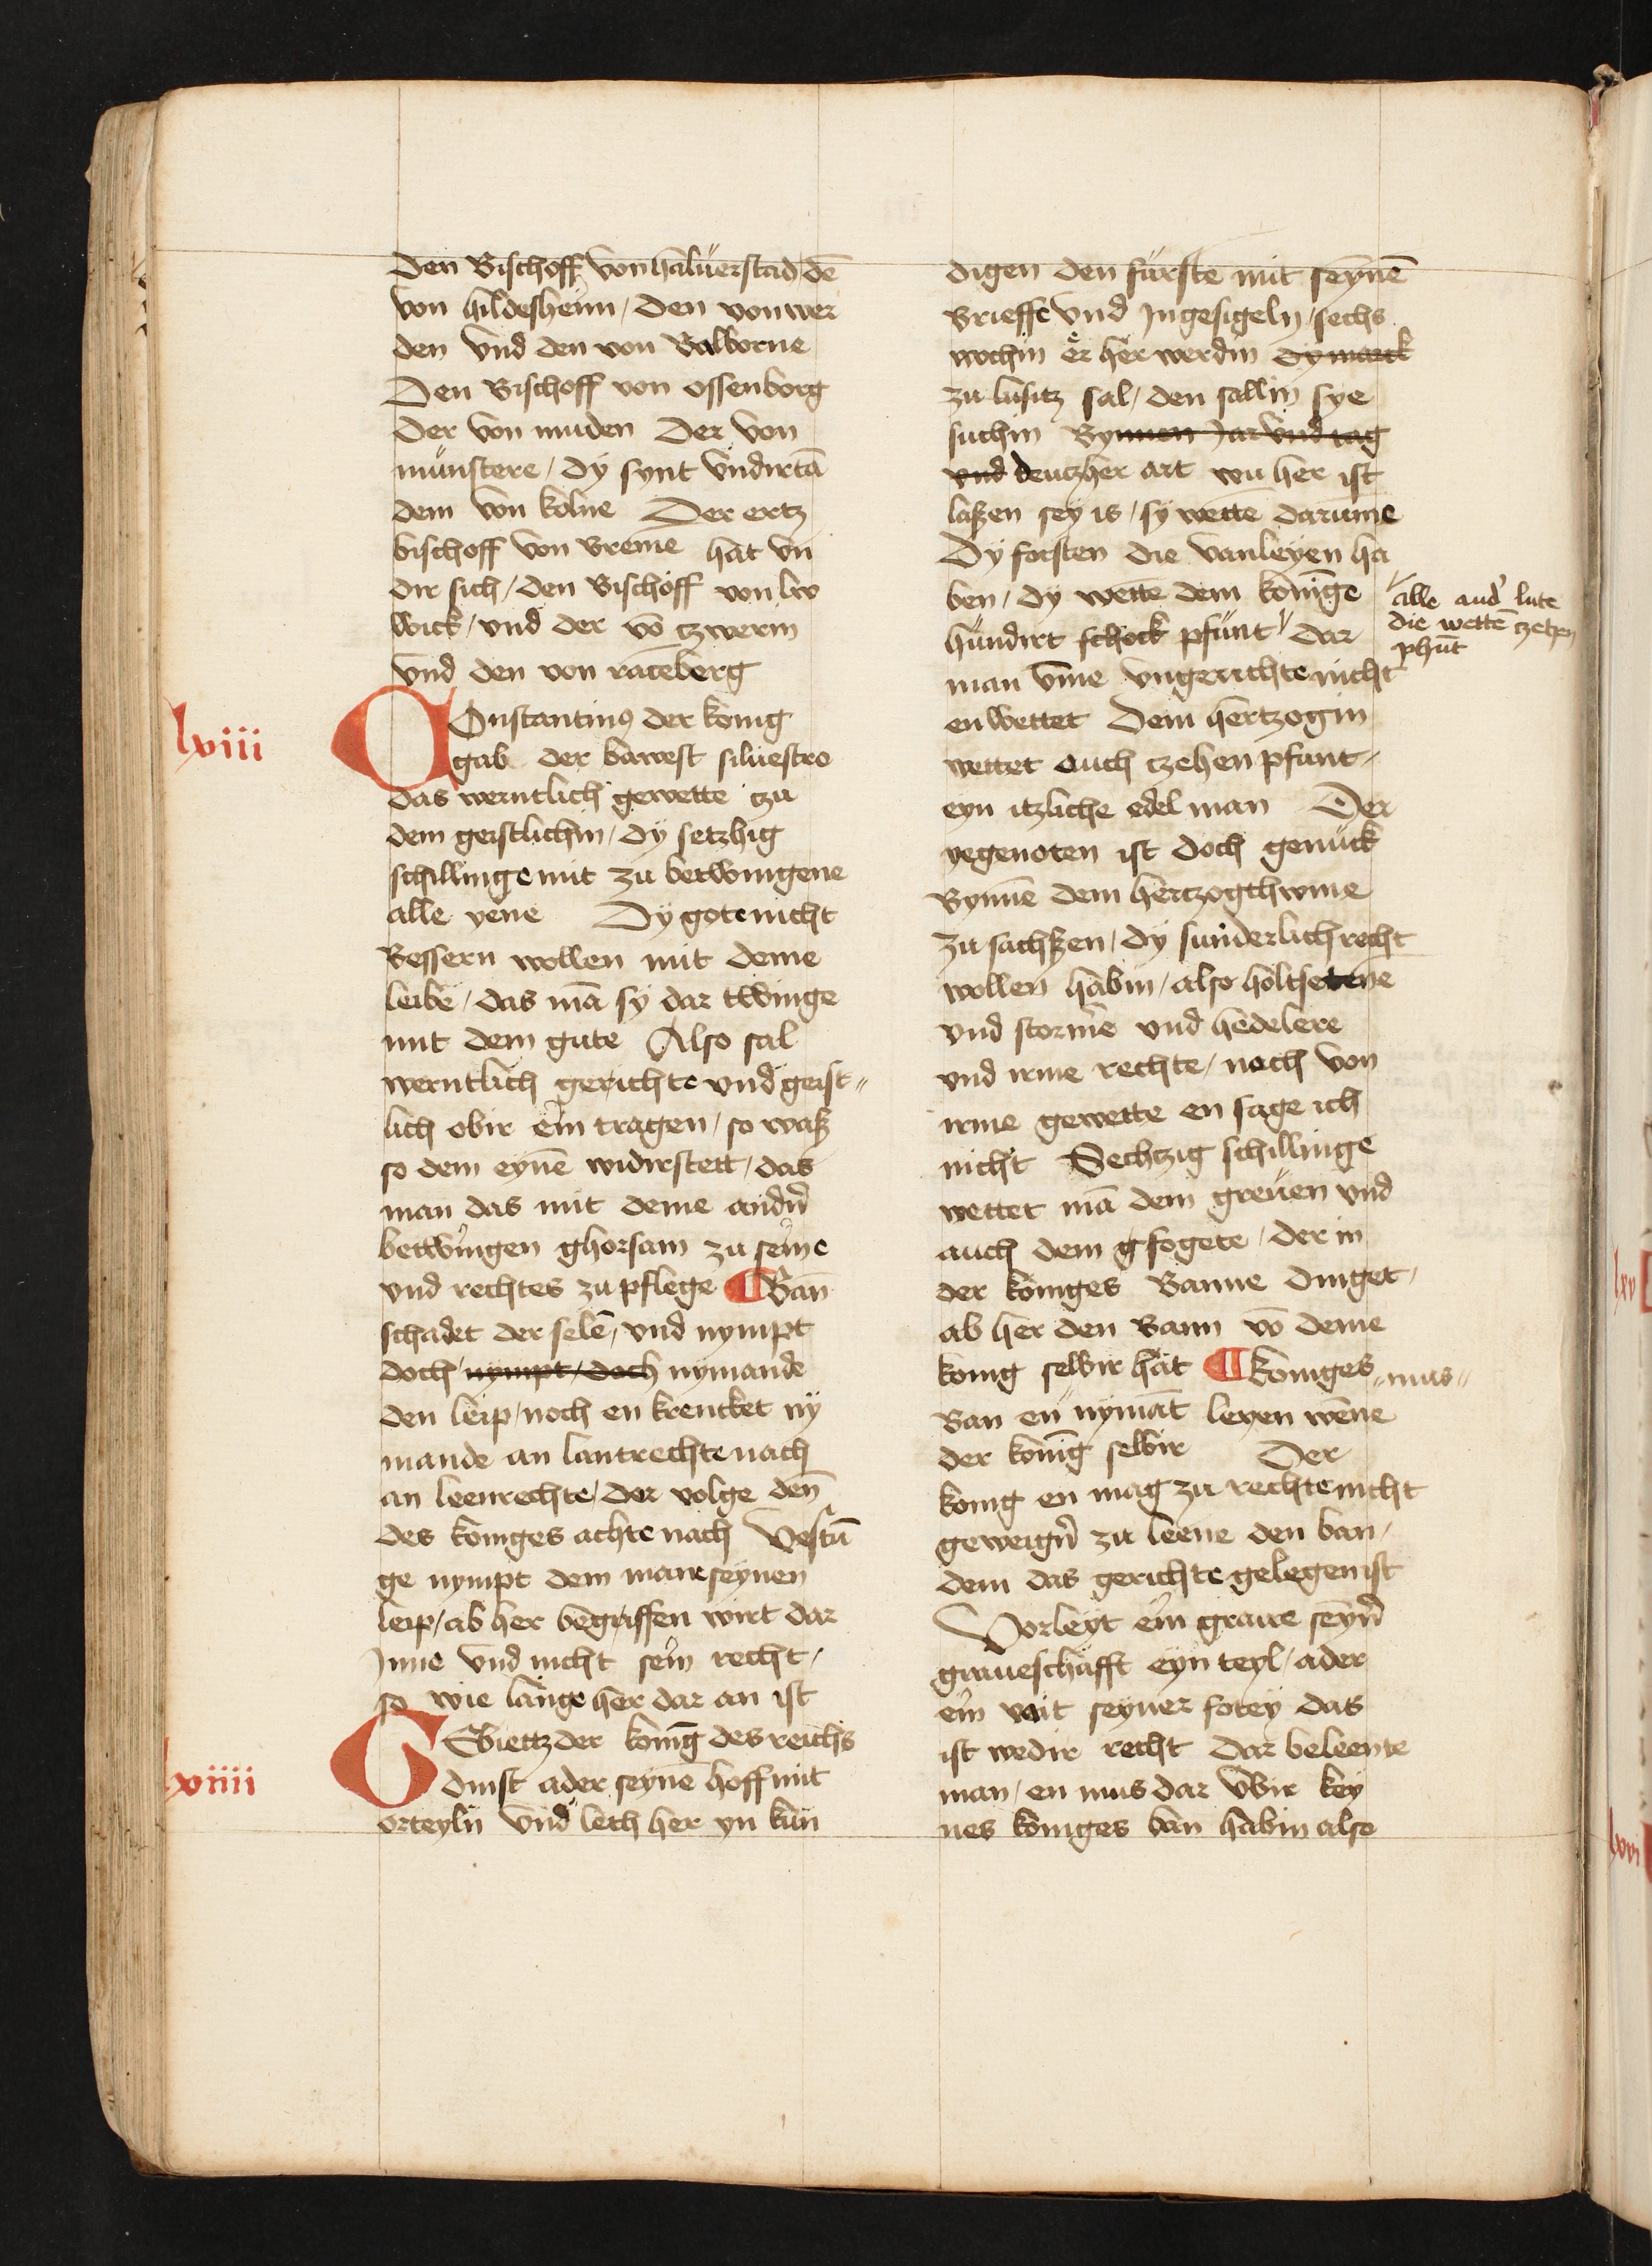 den Bischoff von haluerstad dē
von hildesheim / den von wer
den vnd den von Balborne
Den Bischoff von ossenborg
der von minden Der von
munstere / dy synt vndirtā
dem von kolne Der ertz
bischoff von Breme hat vn
dir sich / den Bischoff von lw
bick / vnd der vō czwerin
vnd den von raceberg
lviii
Constantinꝰ der konig
gab der bawest siluestro
das werntlich gewette czu
dem geistlichin / dy setzhig
schillinge mit zu betwingene
alle yene Dy gote nicht
Bessern wollen mit deme
leibe / das mā sy dar twinge
mit dem gute Also sal
werntlich gerichte vnd geist
lich obir ein tragen / so waß
so dem eynē widirstett / das
man das mit deme andn̄
betwingen ghorsam zu seine
vnd rechtes zu pflege ¶ Ban
schadet der selē / vnd nympt
doch nympt / doch nymande
den leip / noch en krencket ny
mande an lantrechte nach
an leenrechte / der volge den̄
des koniges achte nach Vestū
ge nympt dem manne seynen
leip / ab her begriffen wirt dar
Inne vnd nicht sein recht /
so wie lange her dar an ist
lxiiii
Gebiettz der konig des reichs
dinst ader seyne hoff mit
orteyln vnd leth her yn kun
digen den furste mit seynē
Brieffe vnd Ingesigeln / sechs
wochin er her werdin dy marck
zu lusitz sal / den sallin sye
suchin Bynnen Jar vnd tag
vnd deutzher art wu her ist
laßen sey is / sy wette darume
Dy forsten die vanleyen ha
ben / dy wette dem konige
hundirt schock pfunt dar
alle and' lute
die wettē czehen
phūt
man vme vngerichte nicht
en wettet Dem hertzogin
wettet auch czehen pfunt
eyn itzliche edel man Der
yegenoten ist doch genuck
Bynnē dem hertzogthwme
zu sachßen / dy sunderlich recht
wollen habin / also holtsetene
vnd storme vnd hedelere
vnd irme rechte / noch von
irme gewette en sage ich
nicht Sechtzig schillinge
wettet mā dem greuen vnd
auch dem gfogete / der in
der koniges Banne dinget /
ab her den Bann vō deme
konig selbir hat ¶ koniges
Ban en nymāt leyen wene
mus
der konig selbir Der
konig en mag zu rechte nicht
geweign̄ zu leene den ban /
dem das gerichte gelegen ist
Vorleyt ein graue seyn̄
graueschafft eyn teyl / ader
ein voit seyner fotey das
ist wedir recht Dar beleente
man / en mus dar vbir key
nes koniges ban habin also